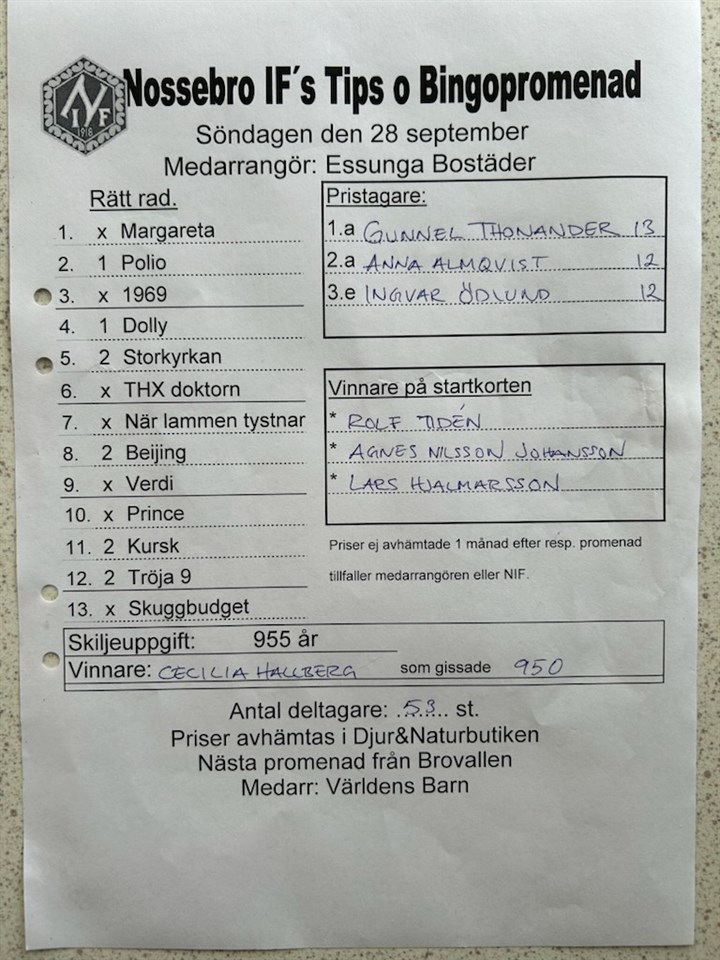 NIF
1918
Nossebro IF´s Tips o Bingopromenad
Söndagen den 28 september
Medarrangör: Essunga Bostäder
Rätt rad.
1. x Margareta
2. 1 Polio
3. x 1969
4. 1 Dolly
5. 2 Storkyrkan
6. x THX doktorn
7. x När lammen tystnar
8. 2 Beijing
9. x Verdi
10. x Prince
11. 2 Kursk
12. 2 Tröja 9
13. x Skuggbudget
Pristagare:
1.a GUNNEL THONANDER 13
2.a ANNA ALMQVIST 12
3.e INGVAR ÖDLUND 12
Vinnare på startkorten
* ROLF TIDÉN
* AGNES NILSSON JOHANSSON
* LARS HJALMARSSON
Priser ej avhämtade 1 månad efter resp. promenad
tillfaller medarrangören eller NIF.
Skiljeuppgift: 955 år
Vinnare: CECILIA HALLBERG som gissade 950
Antal deltagare: 53 st.
Priser avhämtas i Djur&Naturbutiken
Nästa promenad från Brovallen
Medarr: Världens Barn